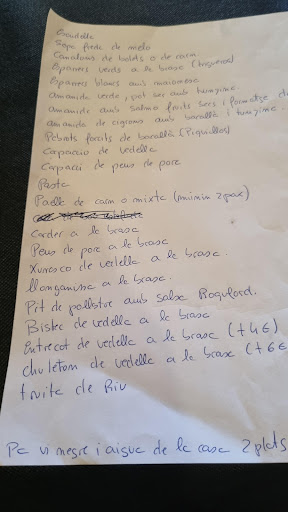 Escudella
Sopa freda de meló
Canalons de bolets o de carn
Esparrecs verds a la brasa (trigueros)
Esparrecs blancs amb maionesa
Amanida verda, pot ser amb tunyina
Amanida amb salmó fruits secs i formatge
amanida de cigrons amb bacallà i tunyina.
Pebrots farcits de bacallà (Piquillos)
Carpaccio de vedella
Carpacci de peus de porc
Pasta
Paella de carn o mixta (mínim 2 pax)
Corder a la brasa
Peus de porc a la brasa
Xurrasco de vedella a la brasa.
Llonganissa a la brasa.
Pit de pollastre amb salsa Roquford.
Bistec de vedella a la brasa
Entrecot de vedella a la brasa (+4€)
chuleton de vedella a la brasa (+6€
truita de Riu
Pa vi negre i aigua de la casa 2 plats